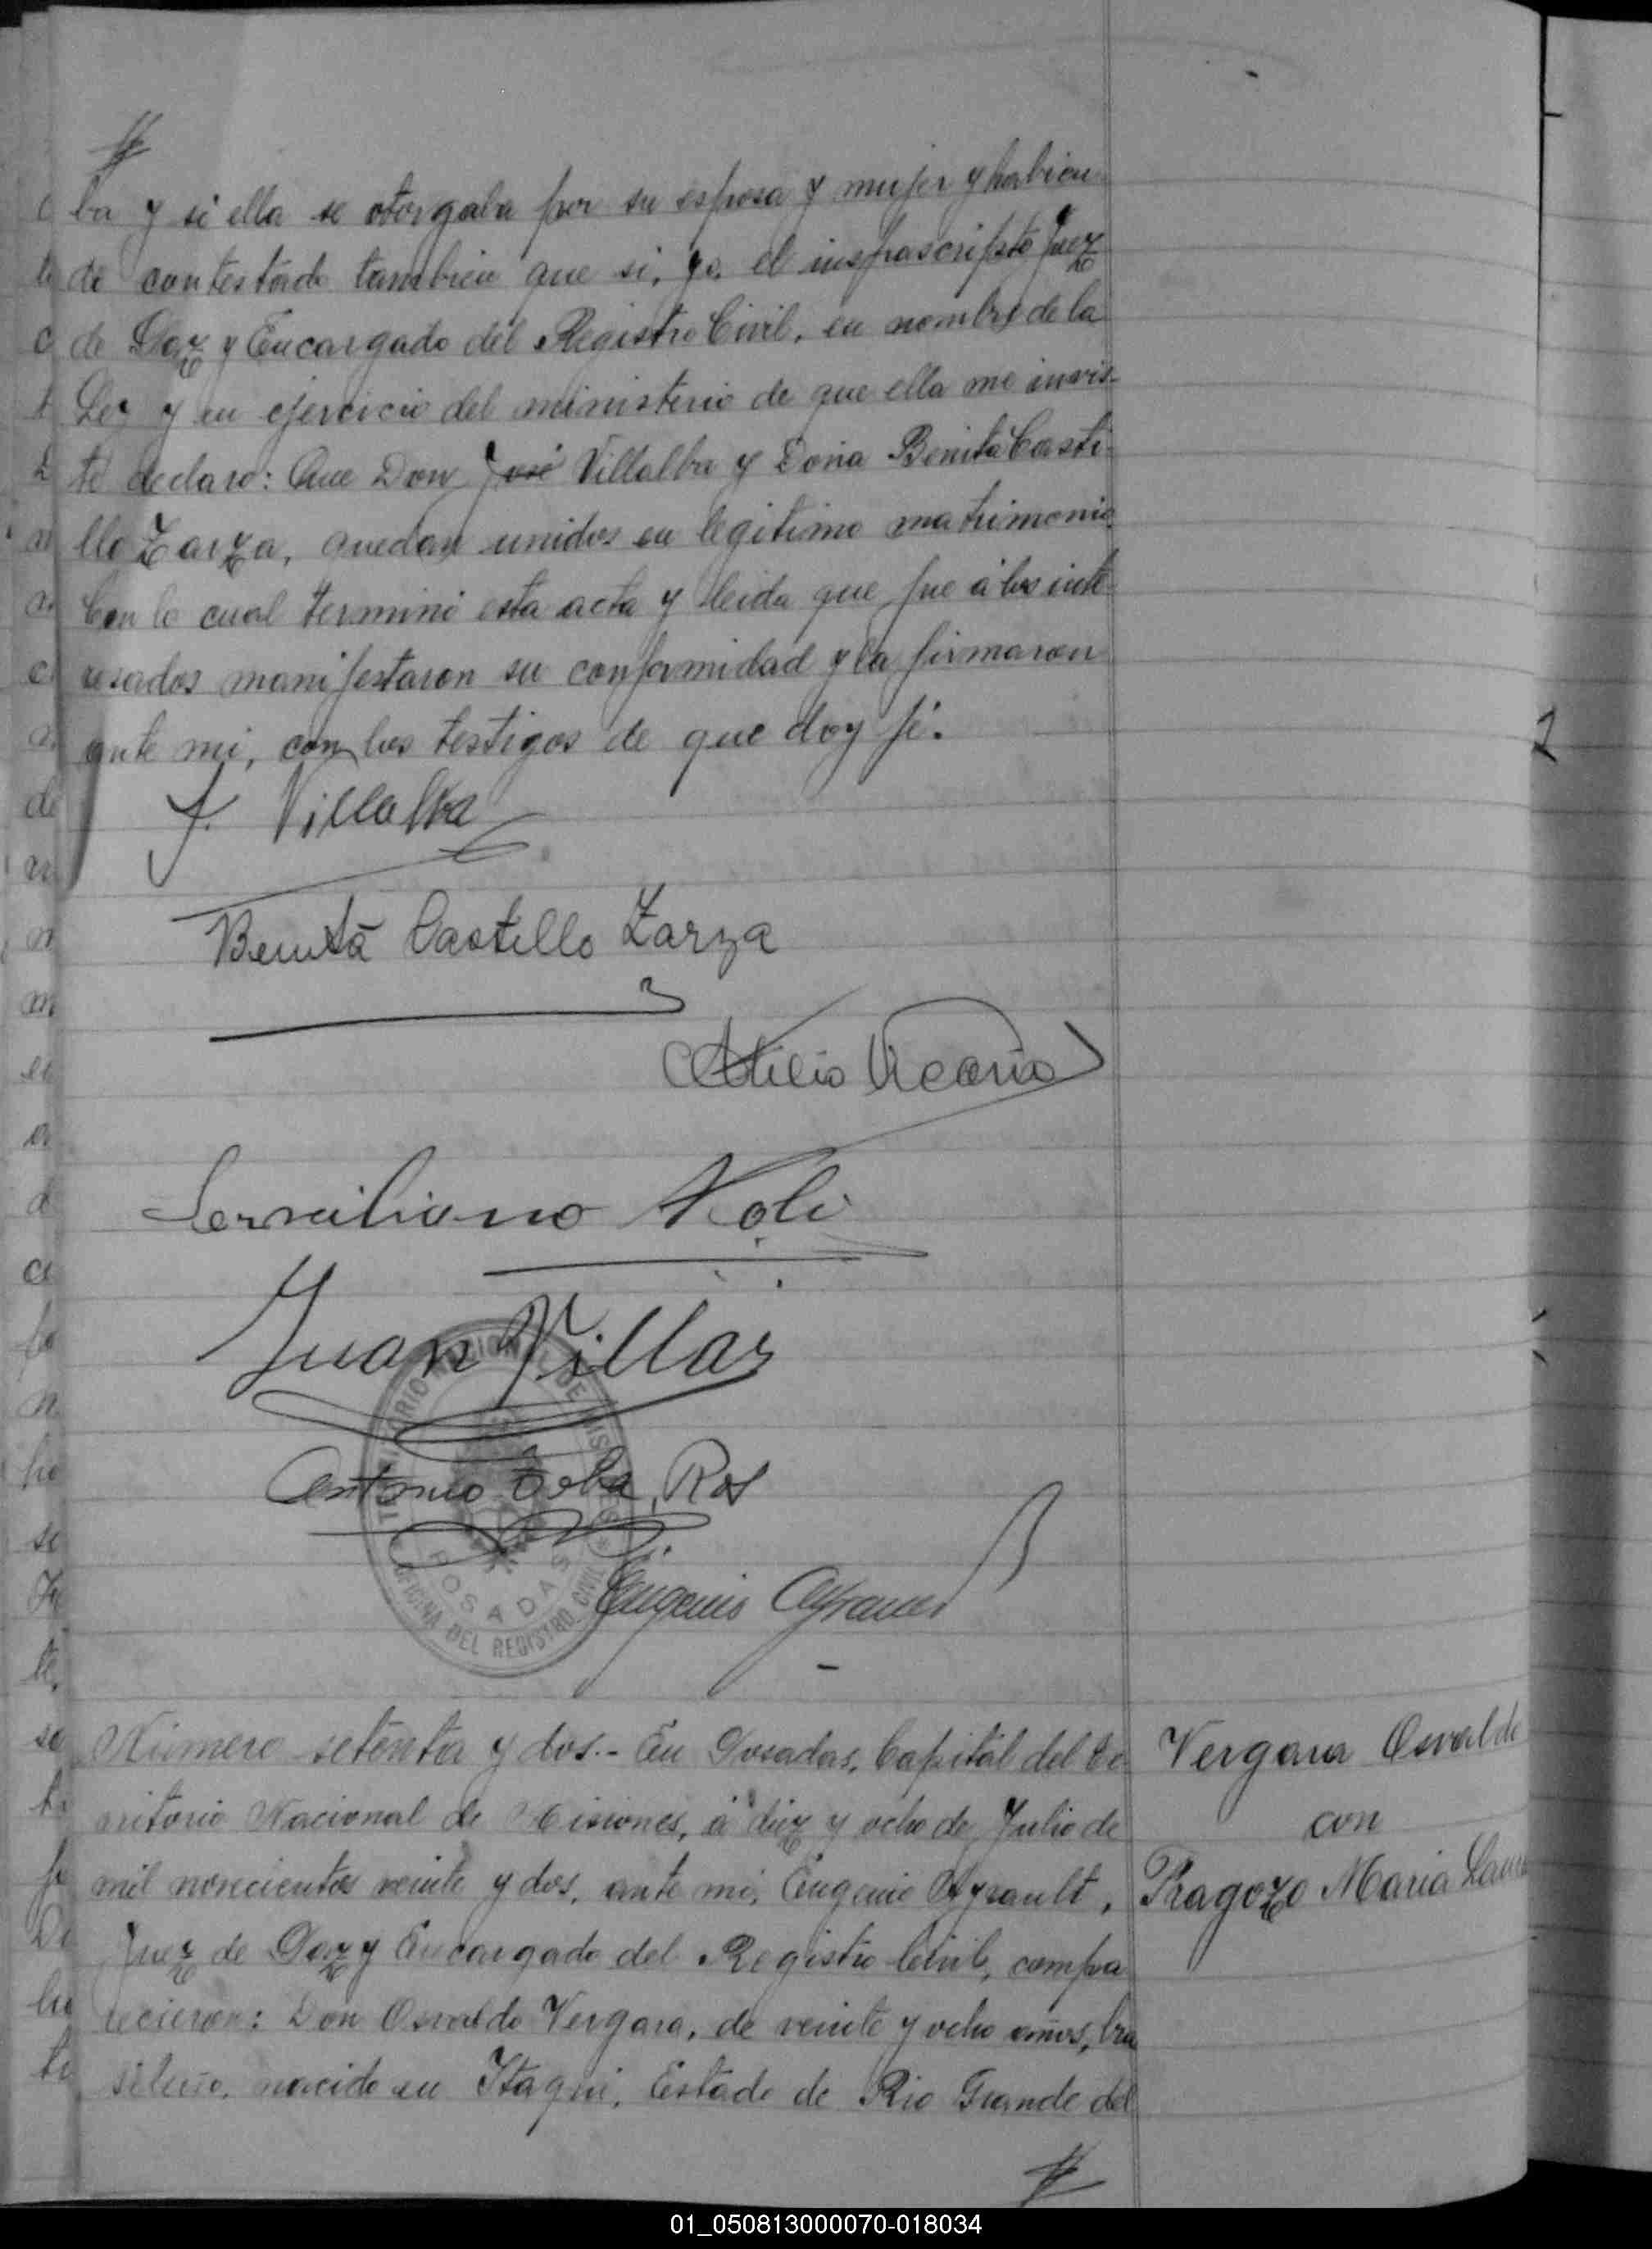 ba y si ella se otorgaba por su esposa y mujer y habien
do contestado tambien que si, yo, el infrascripto Juez
de Paz y Encargado del Registro Civil, en nombre de la
Ley y en ejercicio del ministerio de que ella me invis-
te declaro: Que Don José Villalba y Doña Benita Casti-
llo Zarza, quedan unidos en legitimo matrimonio
Con lo cual terminó esta acta y leida que fue á los inte-
resados manifestaron su conformidad y la firmaron
ante mi, con los testigos de que doy fé.
J. Villalba
Benita Castillo Zarza
Atilio
Serviliano Noli
Juan Villar
Antonio Ros
TERRITORIO NACIONAL DE MISIONES
POSADAS
OFICINA DEL REGISTRO CIVIL
Eugenio Ayrault
Número setenta y dos.- En Posadas, Capital del Te-
rritorio Nacional de Misiones, á diez y ocho de Julio de
mil novecientos veinte y dos, ante mi, Eugenio Ayrault,
Juez de Paz y Encargado del Registro Civil, compa
recieron: Don Osvaldo Vergara, de veinte y ocho años, bra
sileño, nacido en Itaqui, Estado de Rio Grande del
Vergara Osvaldo
con
Ragozo Maria
01_050813000070-018034